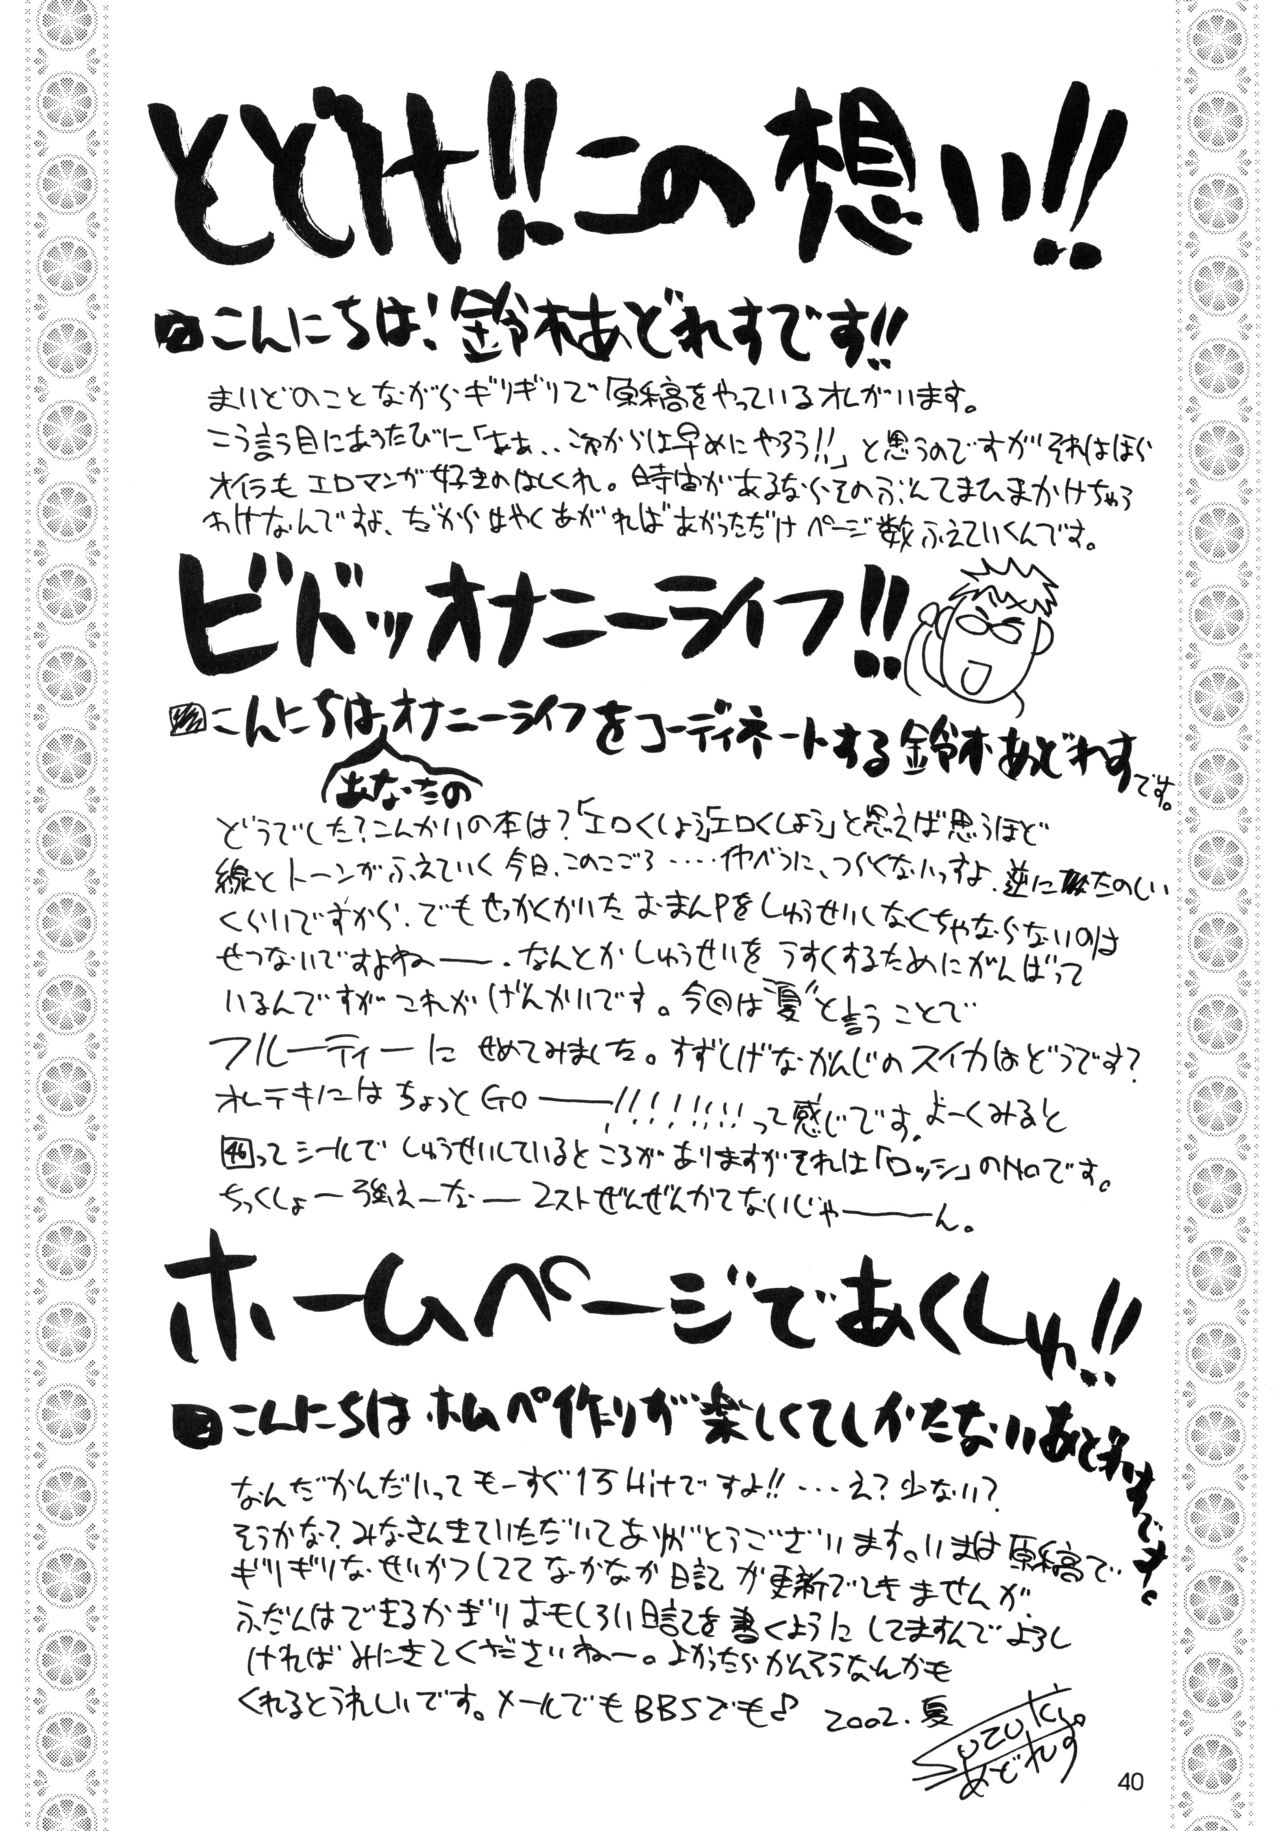 とどけ!!この想い!!
こんにちは!鈴木あどれすです!!
まいどのことながらギリギリで原稿をやっているオレがいます。
こう言う目にあうたびに「ああ..これからは早めにやろう!!」と思うのですがそれはほら
オイラもエロマンガ好きのはしくれ。時間があるならそのぶんてまひまかけちゃう
わけなんですよ、だからはやくあがればあがっただけページ数ふえていくんです。
ビバッオナニーライフ!!
こんにちはあなたのオナニーライフをコーディネートする鈴木あどれすです。
どうでした?こんかいの本は?「エロくしよう」「エロくしよう」と思えば思うほど
線とトーンがふえていく今日、このごろ‥‥いやべつに、つらくないっすよ、逆にたのしい
くらいですから、でもせっかくかいたおまんPをしゅうせいしなくちゃならないのは
せつないですよねー。なんとかしゅうせいをうすくするためにがんばって
いるんですがこれがげんかいです。今回は"夏"と言うことで
フルーティーにせめてみました。すずしげなかんじのスイカはどうです?
オレテキにはちょっとGO――!!!!!!!!って感じです。よーくみると
46ってシールでしゅうせいしているところがありますがそれは「ロッシ」のNoです。
ちっくしょー強えーなー2ストぜんぜんかてないじゃーーん。
ホームページであくしゅ!!
こんにちはホムペ作りが楽しくてしかたないあどれすです。
なんだかんだいってもーすぐ1万Hitですよ!!・・・え?少ない?
そうかな?みなさんきていただいてありがとうございます。いまは原稿で
ギリギリなせいかつしててなかなか日記が更新できませんが
ふだんはできるかぎりおもしろい日記を書くようにしてますんでよろし
ければみにきてくださいねー。よかったらかんそうなんかも
くれるとうれしいです。メールでもBBSでも♪ 2002.夏
Suzuki
あどれす
40